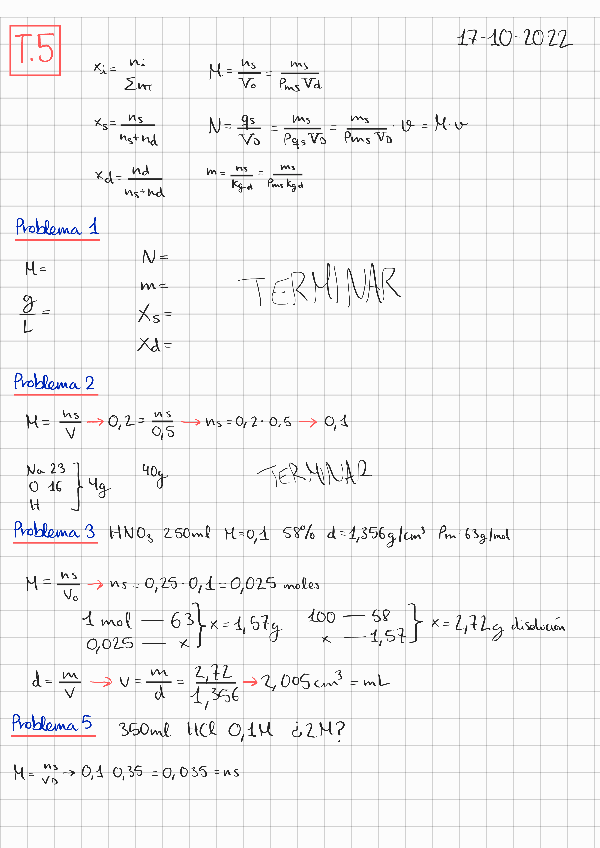 T.5
17-10-2022
xi = ni / Σni M = ns / V0 = ms / Pms Vd
xs = ns / ns+nd N = qs / VD = ms / Pqs VD = ms / Pms VD · v = M·v
xd = nd / ns+nd m = ns / kg d = ms / Pms kg d
Problema 1
M= N=
g/L = m=
Xs=
Xd=
TERMINAR
Problema 2
M = ns / V → 0,2 = ns / 0,5 → ns = 0,2 · 0,5 → 0,1
Na 23
O 16 } 4g 40g
H
TERMINAR
Problema 3 HNO3 250ml M=0,1 58% d=1,356g/cm³ Pm 63g/mol
M = ns / V0 → ns = 0,25 · 0,1 = 0,025 moles
1 mol — 63 100 — 58
0,025 — x } x = 1,57g x — 1,57 } x = 2,72g disolución
d = m / V → v = m / d = 2,72 / 1,356 → 2,005 cm³ = mL
Problema 5 350ml HCl 0,1M ¿2M?
M = ns / VD → 0,1 0,35 = 0,035 = ns